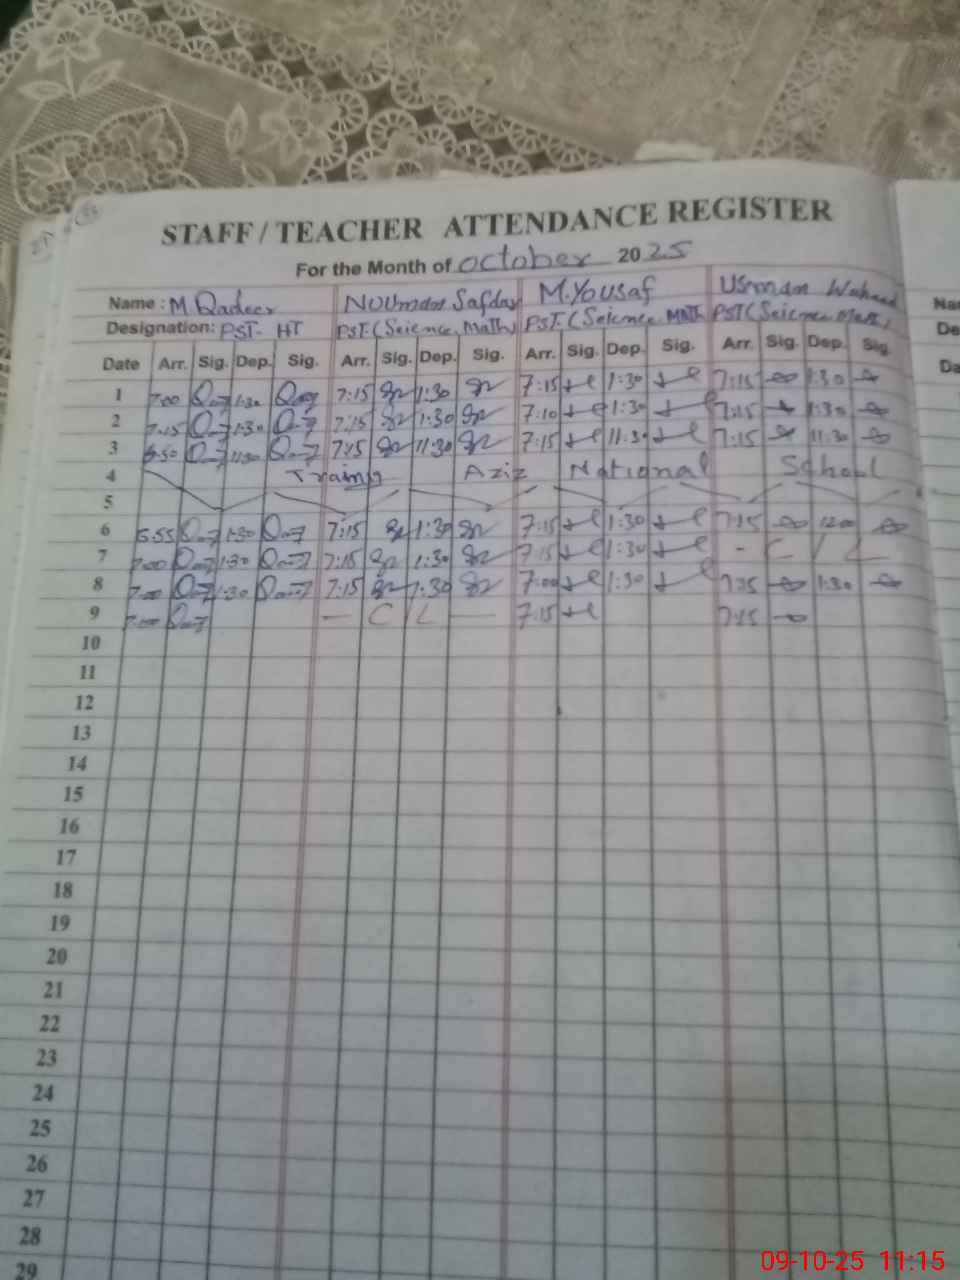 STAFF / TEACHER ATTENDANCE REGISTER
For the Month of October 2025
Name: M Qadeer Nouman Safdar M.Yousaf Usman Waheed Na
Designation: PST- HT PST (Science, Math) PST (Science MATH PST (Science Math) De
Date Arr. Sig. Dep. Sig. Arr. Sig. Dep. Sig. Arr. Sig. Dep. Sig. Arr. Sig. Dep. Sig. Da
1 7:00 1:30 7:15 1:30 7:15 1:30 7:15 1:30
2 7:15 1:30 7:15 1:30 7:10 1:30 7:15 1:30
3 6:50 11:30 7:15 11:30 7:15 11:30 7:15 11:30
4 Training Aziz National School
5
6 6:55 1:30 7:15 1:30 7:15 1:30 7:15 1200
7 7:00 1:30 7:15 1:30 7:15 1:30 - C / L -
8 7:00 1:30 7:15 1:30 7:00 1:30 1:30
9 7:00 — C L — 7:15 7:15
10
11
12
13
14
15
16
17
18
19
20
21
22
23
24
25
26
27
28
29
09-10-25 11:15